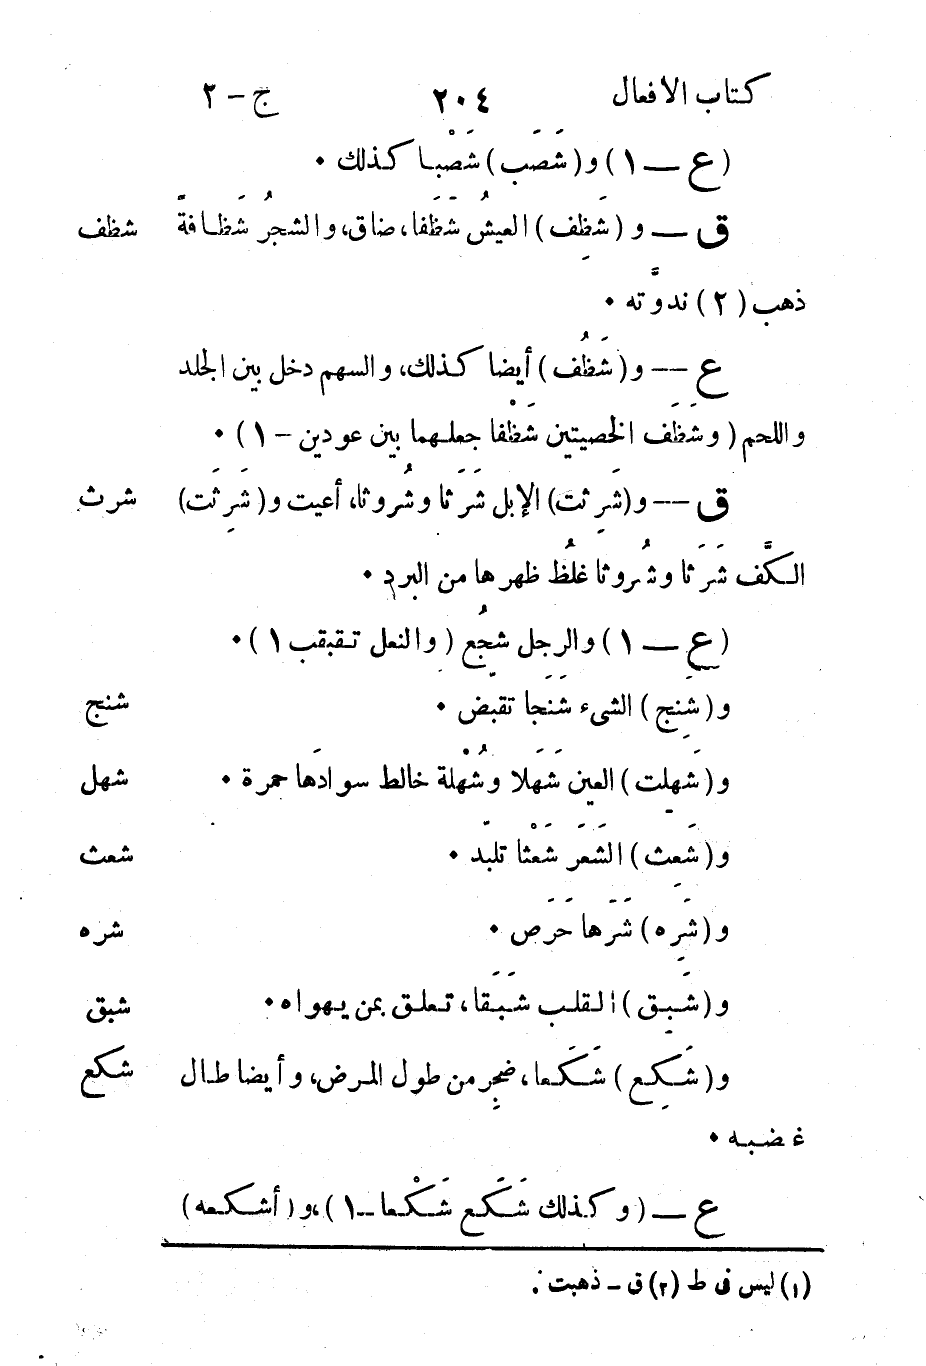 كتاب الافعال ٢٠٤ ج - ٢
(ع — ١) و(شَصَب) شَصْبا كذلك •
ق — و (شَظِف) العيشُ شَظَفا، ضاق، والشجرُ شَظافةً شظف
ذهب (٢) ندوَّته •
ع -- و(شَظُف) أيضا كذلك، والسهم دخل بين الجلد
واللحم (وشَظَف الخصيتين شَظْفا جعلهما بين عودين - ١) •
ق -- و(شَرِثت) الإبل شَرَثا وشُروثا، أعيت و(شَرِثَت) شرث
الكَّف شَرَثا وشُروثا غلُظ ظهرها من البرد •
(ع — ١) والرجل شجُع (والنعل تقبقب ١) •
و(شَنِج) الشىء شَنَجا تقبّض • شنج
و(شَهِلت) العين شَهَلا وشُهْلة خالط سوادَها حمرة • شهل
و(شَعِث) الشَعَرَ شَعْثا تلبّد • شعث
و(شَرِه) شَرَها حَرَص • شره
و(شَبِق) القلب شَبَقا، تعلق بمن يهواه • شبق
و(شَكِع) شَكَعا، ضجِر من طول المرض، وأيضا طال شكع
غضبه •
ع — (وكذلك شَكَع شَكْعا - ١)، و(أشكعه)
(١) ليس فى ط (٢) ق - ذهبت .